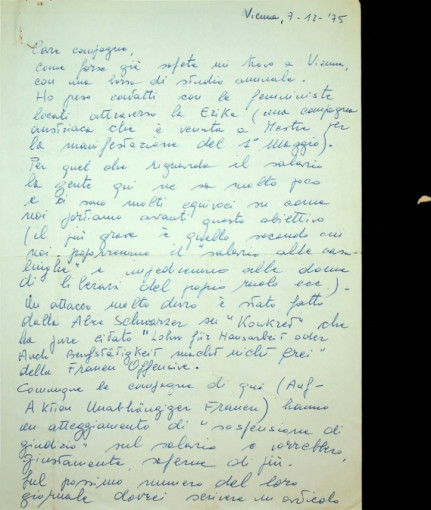 Vienna, 7-12-'75
Care compagne,
come forse già sapete mi trovo a Vienna,
con una borsa di studio annuale.
Ho preso contatti con le femministe
locali attraverso la Erika (una compagna
austriaca che è venuta a Mestre per
la manifestazione del 1° Maggio).
Per quel che riguarda il salario
la gente qui ne sa molto poco
e ci sono molti equivoci su come
noi portiamo avanti questo obiettivo
(il più grave è quello secondo cui
noi proporremmo il "salario alle casa-
linghe" e impediremmo alle donne
di liberarsi del proprio ruolo ecc.)-
Un attacco molto duro è stato fatto
dalla Alice Schwarzer su "Konkret" che
ha pure citato "Lohn für Hausarbeit oder
Auch Berufstätigkeit macht nicht frei"
della Frauen Offensive.
Comunque le compagne di qui (AUF-
Aktion Unabhängiger Frauen) hanno
un atteggiamento di "sospensione di
giudizio" sul salario e vorrebbero,
giustamente, saperne di più.
Sul prossimo numero del loro
giornale dovrei scrivere un articolo